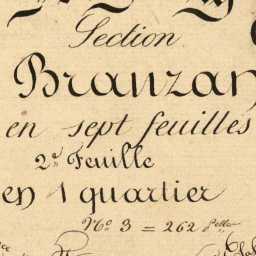 Section
Branzan
en sept feuilles
2e. Feuille
en 1 quartier
No. 3 = 262